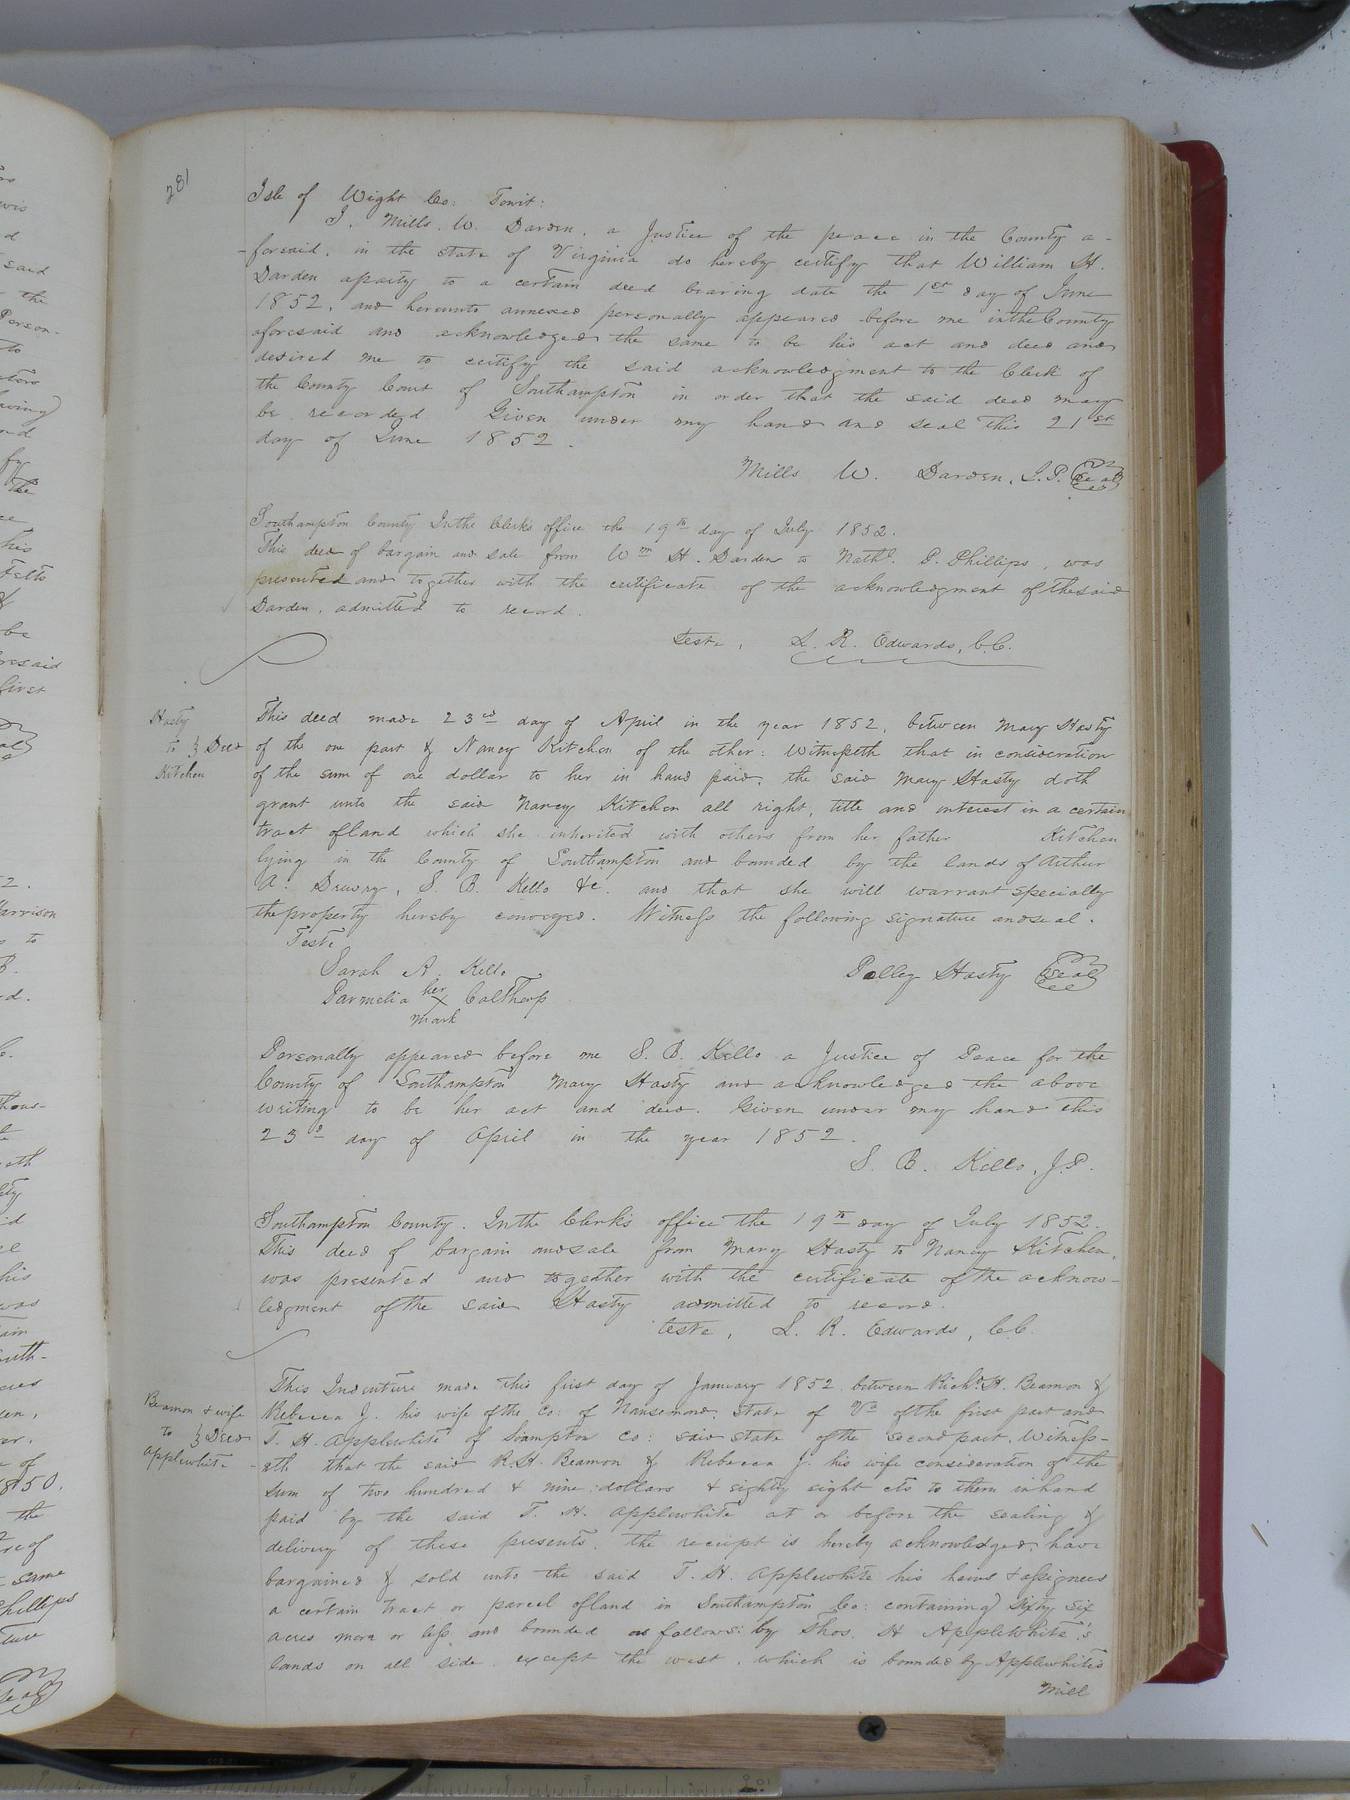 281
Isle of Wight Co: Towit:
I, Mills. W. Darden, a Justice of the peace in the County a-
-foresaid, in the state of Virginia do hereby certify that William H.
Darden aparty to a certain deed bearing date the 1st day of June
1852, and hereunto annexed personally appeared before me inthe County
aforesaid and acknowledged the same to be his act and deed and
desired me to certify the said acknowledgment to the Clerk of
the County Court of Southampton in order that the said deed may
be recorded Given under my hand and seal this 21st
day of June 1852.
Mills W. Darden, J.P. Seal
Southampton County Inthe Clerk's office the 19th day of July 1852.
This deed of bargain and sale from Wm H. Darden to Nathl. P. Phillips, was
presented and together with the certificate of the acknowledgment of thesaid
Darden, admitted to record.
Teste, L. R. Edwards, C.C.
Hasty
to } Deed
Kitchen
This deed made 23rd day of April in the year 1852, between Mary Hasty
of the one part & Nancy Kitchen of the other: Witnesseth that in consideration
of the sum of one dollar to her in hand paid, the said Mary Hasty doth
grant unto the said Nancy Kitchen all right, title and interest in a certain
tract ofland which she inherited with others from her father Kitchen
lying in the County of Southampton and bounded by the lands of Arthur
A. Drewry, S. B. Kello &c. and that she will warrant specially
the property hereby conveyed. Witness the following signature andseal.
Teste
Sarah A. Kello
Parmelia her x mark Calthorp
Polley Hasty Seal
Personally appeared before me S. B. Kello a Justice of Peace for the
County of Southampton Mary Hasty and acknowledged the above
writing to be her act and deed. Given under my hand this
23d day of April in the year 1852.
S. B. Kello, J.P.
Southampton County. Inthe Clerk's office the 19th day of July 1852.
This deed of bargain andsale from Mary Hasty to Nancy Kitchen,
was presented and together with the certificate of the acknow-
ledgment of the said Hasty admitted to record.
teste, L. R. Edwards, C.C.
Beamon & wife
to } Deed
Applewhite
This Indenture made this first day of January 1852 between Richd. H. Beamon &
Rebecca J. his wife ofthe Co: of Nansemond, state of Va ofthe first part and
T. H. Applewhite of Sampton Co: said state of the second part, Witness-
-eth that the said R. H. Beamon & Rebecca J. his wife consideration of the
sum of two hundred & nine dollars & eighty eight cts to them inhand
paid by the said T. H. Applewhite at or before the sealing &
delivery of these presents, the receipt is hereby acknowledged, have
bargained & sold unto the said T. H. Applewhite his heirs & assignees
a certain tract or parcel ofland in Southampton Co: containing Sixty six
acres more or less and bounded as follows: by Thos. H Applewhite's
lands on all side except the west, which is bounded by Applewhite's
Mill